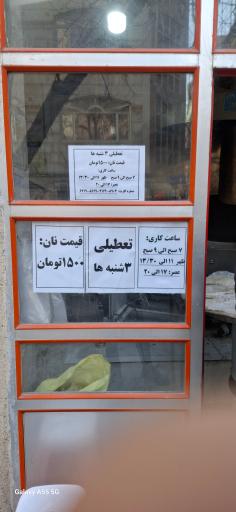 تعطیلی ۳ شنبه ها
قیمت نان: ۱۵۰۰تومان
ساعت کاری:
۷ صبح الی ۹ صبح   ظهر ۱۱ الی ۱۳/۳۰
عصر: ۱۷ الی ۲۰
قیمت نان:
۱۵۰۰تومان
تعطیلی
۳شنبه ها
ساعت کاری:
۷ صبح الی ۹ صبح
ظهر ۱۱ الی ۱۳/۳۰
عصر: ۱۷ الی ۲۰
Galaxy A55 5G